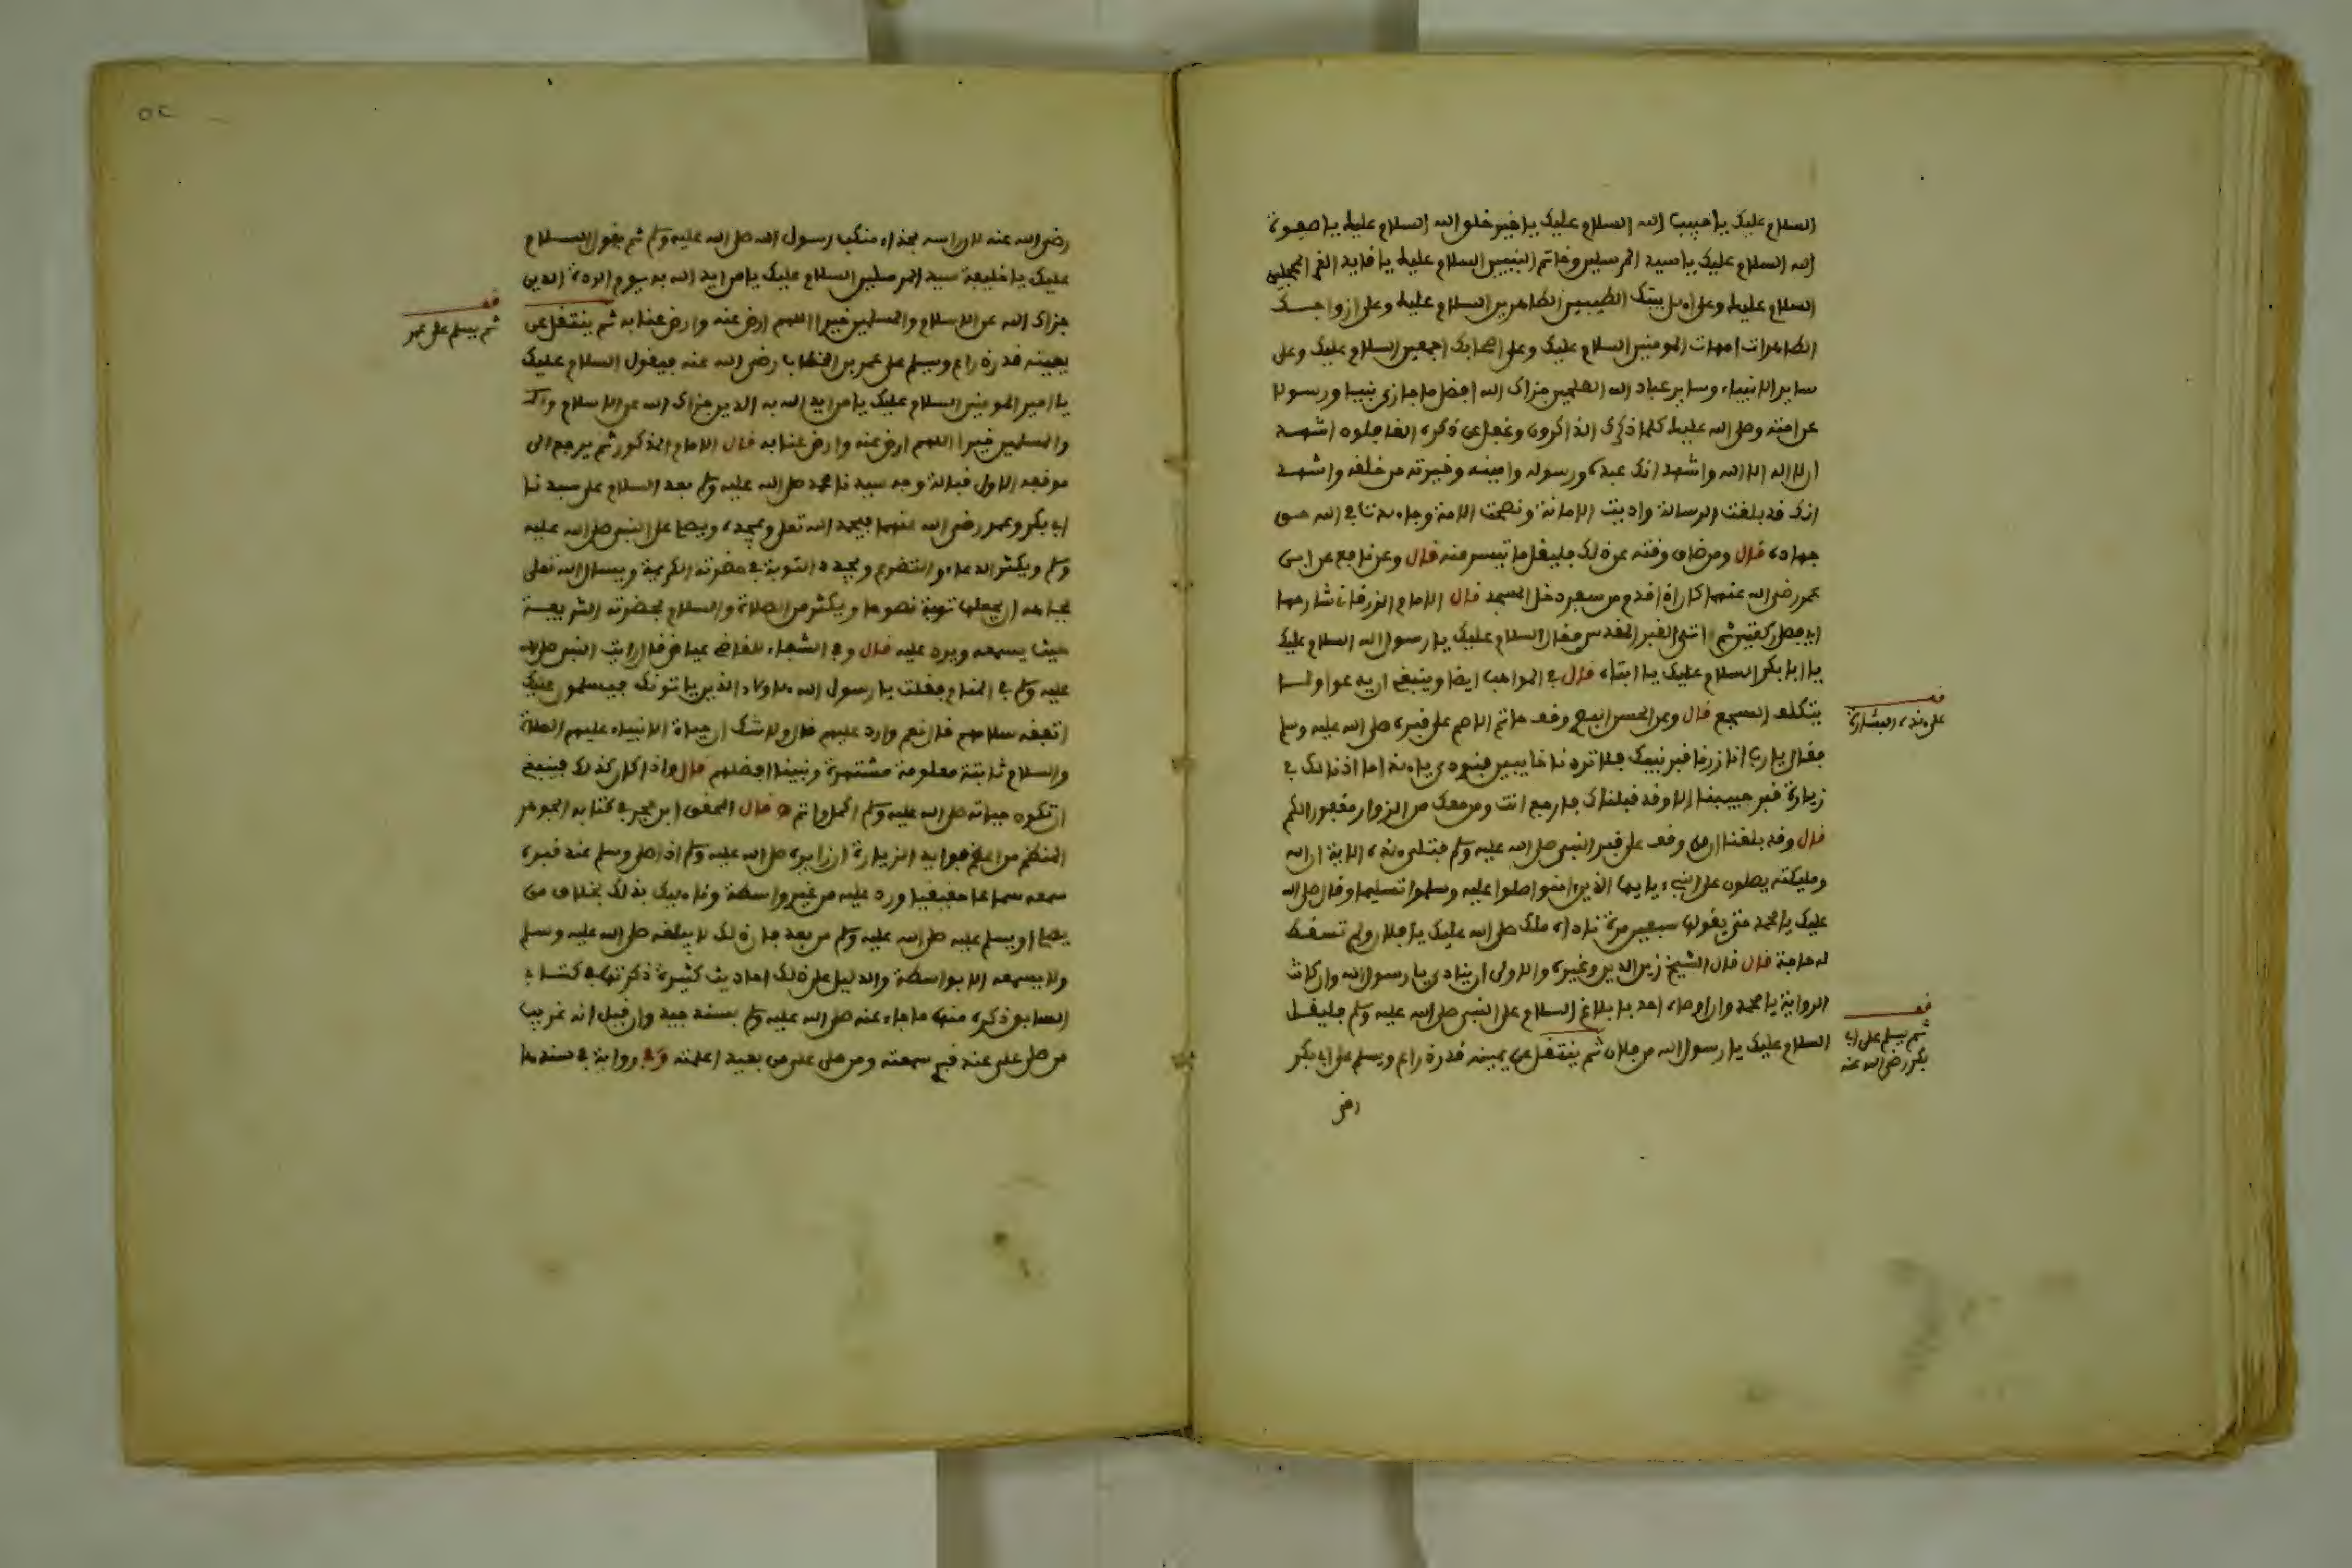 السلام عليك يا حبيب الله السلام عليك يا خير خلق الله السلام عليك يا صفوة
الله السلام عليك يا سيد المرسلين وخاتم النبيين السلام عليك يا قايد الغر المحجلين
السلام عليك وعلى اهل بيتك الطيبين الطاهرين السلام عليك وعلى ازواجك
الطاهرات امهات المومنين السلام عليك وعلى اصحابك اجمعين السلام عليك وعلى
ساير الانبياء وساير عباد الله الصلحين جزاك الله افضل ما جازى نبيا ورسولا
عن امته وصلى الله عليك كلما ذكرك الذاكرون وغفل عن ذكرك الغافلون اشهد
ان لا اله الا الله واشهد انك عبده ورسوله وامينه وخيرته من خلقه واشهد
انك قد بلغت الرسالة واديت الامانة ونصحت الامة وجاهدت في الله حق
جهاده قال ومن ضاق وقته عن ذلك فليقل ما تيسر منه قال وعن نافع عن ابن
عمر رضي الله عنهما كان اذا قدم من سفر دخل المسجد قال الامام الزرقاني شارحها
اي فصلى ركعتين ثم اتى القبر المقدس فقال السلام عليك يا رسول الله السلام عليك
يا ابا بكر السلام عليك يا ابتاه قال في المواهب ايضا وينبغي ان يدعوا ولا
يتكلف السجع قال وعن الحسن البصري وقف حاتم الاصم على قبره صلى الله عليه وسلم
فقال يا رب انا زرنا قبر نبيك فلا تردنا خايبين فنودي يا هذا ما اذنا لك في
زيارة قبر حبيبنا الا وقد قبلناك فارجع انت ومن معك من الزوار مغفورا لكم
قال وقد بلغنا ان من وقف على قبر النبي صلى الله عليه وسلم فتلى هذه الاية ان الله
ومليكته يصلون على النبيء يا يها الذين امنوا صلوا عليه وسلموا تسليما وقال صلى الله
عليك يا محمد حتى يقولها سبعين مرة ناداه ملك صلى الله عليك يا فلان ولم تسقط
له حاجة قال قال الشيخ زين الدين وغيره والاولى ان ينادي يا رسول الله وان كانت
الرواية يا محمد وان اوصاه احد بابلاغ السلام على النبي صلى الله عليه وسلم فليقل
السلام عليك يا رسول الله من فلان ثم ينتقل عن يمينه قدر ذراع ويسلم على ابي بكر
رضي
قف
على هذه البشارة
قف
ثم يسلم على ابي
بكر رضي الله عنه
رضي الله عنه لان راسه بحذاء منكب رسول الله صلى الله عليه وسلم ثم يقول السلام
عليك يا خليفة سيد المرسلين السلام عليك يا من ايد الله به يوم الردة الدين
جزاك الله عن الاسلام والمسلمين خيرا اللهم ارض عنه وارض عنا به ثم ينتقل عن
يمينه قدر ذراع ويسلم على عمر بن الخطاب رضي الله عنه فيقول السلام عليك
يا امير المومنين السلام عليك يا من ايد الله به الدين جزاك الله عن الاسلام
والمسلمين خيرا اللهم ارض عنه وارض عنا به قال الامام المذكور ثم يرجع الى
موقفه الاول قبالة وجه سيدنا محمد صلى الله عليه وسلم بعد السلام على سيدنا
ابي بكر وعمر رضي الله عنهما فيحمد الله تعلى ويمجده ويصلي على النبي صلى الله عليه
وسلم ويكثر الدعاء والتضرع ويجدد التوبة في حضرته الكريمة ويسال الله تعلى
بجاهه ان يجعلها توبة نصوحا ويكثر من الصلاة والسلام بحضرته الشريفة
حيث يسمعه ويرد عليه قال وفي الشفاء للقاضي عياض قال رايت النبي صلى الله
عليه وسلم في المنام فقلت يا رسول الله هاولاء الذين ياتونك فيسلمون عليك
اتفقه سلامهم قال نعم وارد عليهم قال ولا شك ان حياة الانبياء عليهم الصلاة
والسلام ثابتة معلومة مشتهرة ونبينا افضلهم قال واذا كان كذلك فينبغي
ان تكون حياته صلى الله عليه وسلم اكمل واتم قال المحقق ابن حجر في كتابه الجوهر
المنظم من اعظم فوايد الزيارة ان زايره صلى الله عليه وسلم اذا صلى وسلم عند قبره
سمعه سماعا حقيقيا ورد عليه من غير واسطة وناهيك بذلك بخلاف من
يصلي او يسلم عليه صلى الله عليه وسلم من بعد فان ذلك لا يبلغه صلى الله عليه وسلم
ولا يسمعه الا بواسطة والدليل على ذلك احاديث كثيرة ذكرتها في كتابي
السابق ذكره منها ما جاء عنه صلى الله عليه وسلم بسند جيد وان قيل انه غريب
من صلى علي عند قبري سمعته ومن صلى علي من بعيد اعلمته وفي رواية في سندها
قف
ثم يسلم على عمر